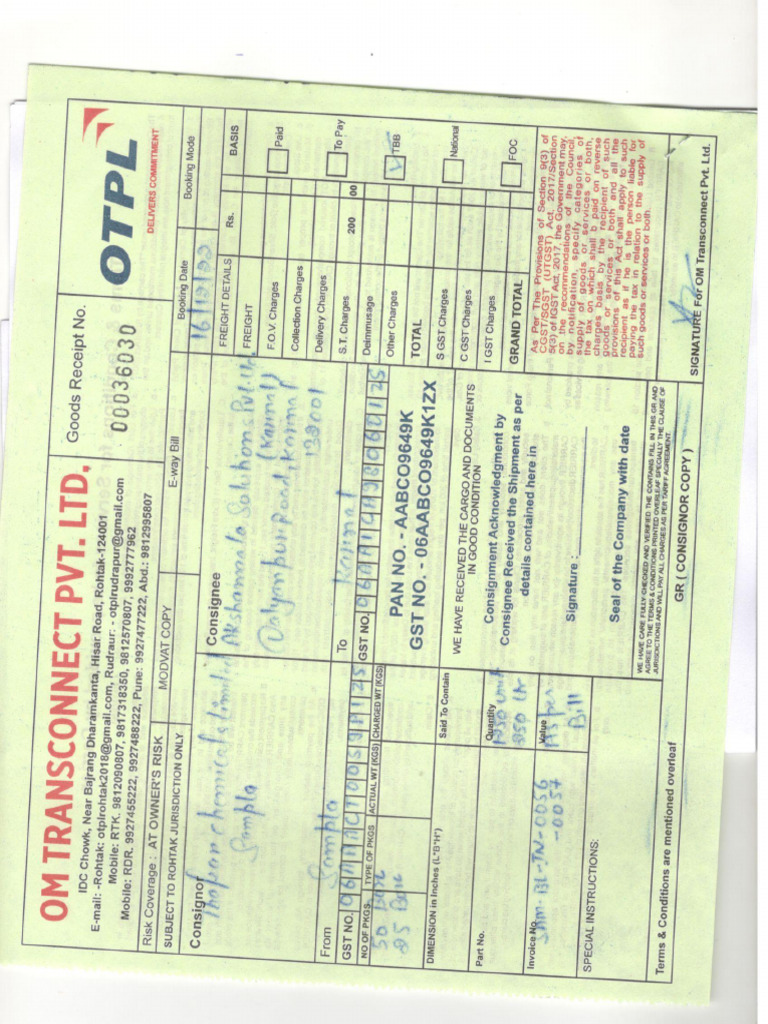 OM TRANSCONNECT PVT. LTD.
IDC Chowk, Near Bajrang Dharamkanta, Hisar Road, Rohtak-124001
E-mail: -Rohtak: otplrohtak2018@gmail.com, Rudraur: - otplrudrapur@gmail.com
Mobile: RTK. 9812090807, 9817318350, 9812570807, 9992777962
Mobile: RDR. 9927455222, 9927488222, Pune: 9927477222, Abd.: 9812995807
Goods Receipt No.
00036030
OTPL
DELIVERS COMMITMENT
Risk Coverage : AT OWNER'S RISK
SUBJECT TO ROHTAK JURISDICTION ONLY
MODVAT COPY
E-way Bill
Booking Date
16/12/22
Booking Mode
Consignor
chemicals limited
Sampla
From
Sampla
GST NO.
Consignee
Akshamala Solutions Pvt. Ltd.
(Karnal)
Road, Karnal
132001
To
Karnal
GST NO.
NO OF PKGS.
TYPE OF PKGS
ACTUAL WT (KGS)
CHARGED WT (KGS)
50
25
DIMENSION in Inches (L*B*H*)
Said To Contain
Part No.
Quantity
Invoice No.
-0057
Value
As per
Bill
SPECIAL INSTRUCTIONS:
Terms & Conditions are mentioned overleaf
PAN NO. - AABCO9649K
GST NO. - 06AABCO9649K1ZX
WE HAVE RECEIVED THE CARGO AND DOCUMENTS
IN GOOD CONDITION
Consignment Acknowledgment by
Consignee Received the Shipment as per
details contained here in
Signature :
Seal of the Company with date
WE HAVE CARE FULLY CHECKED AND VERIFIED THE CONTAINS FILL IN THIS GR AND
AGREE TO THE TERMS & CONDITIONS PRINTED OVERLEAF SPECIALLY THE CLAUSE OF
JURISDICTIONS AND WILL PAY ALL CHARGES AS PER TARIFF AGREEMENT
GR ( CONSIGNOR COPY )
FREIGHT DETAILS
Rs.
BASIS
FREIGHT
F.O.V. Charges
Collection Charges
Delivery Charges
S.T. Charges
200
00
Deimmusage
Other Charges
TOTAL
S GST Charges
C GST Charges
I GST Charges
GRAND TOTAL
Paid
To Pay
TBB
National
FOC
As Per The Provisions of Section 9(3) of
CGST/SGST (UTGST) Act, 2017/Section
5(3) of IGST Act, 2017, the Government may,
on the recommendations of the Council,
by notification, specify categories of
supply of goods or services or both,
the tax on which shall b paid on reverse
charges basis by the recipient of such
goods or services or both and all the
provisions of this Act shall apply to such
recipient as if he is the person liable for
paying the tax in relation to the supply of
such goods or services or both.
SIGNATURE For OM Transconnect Pvt. Ltd.